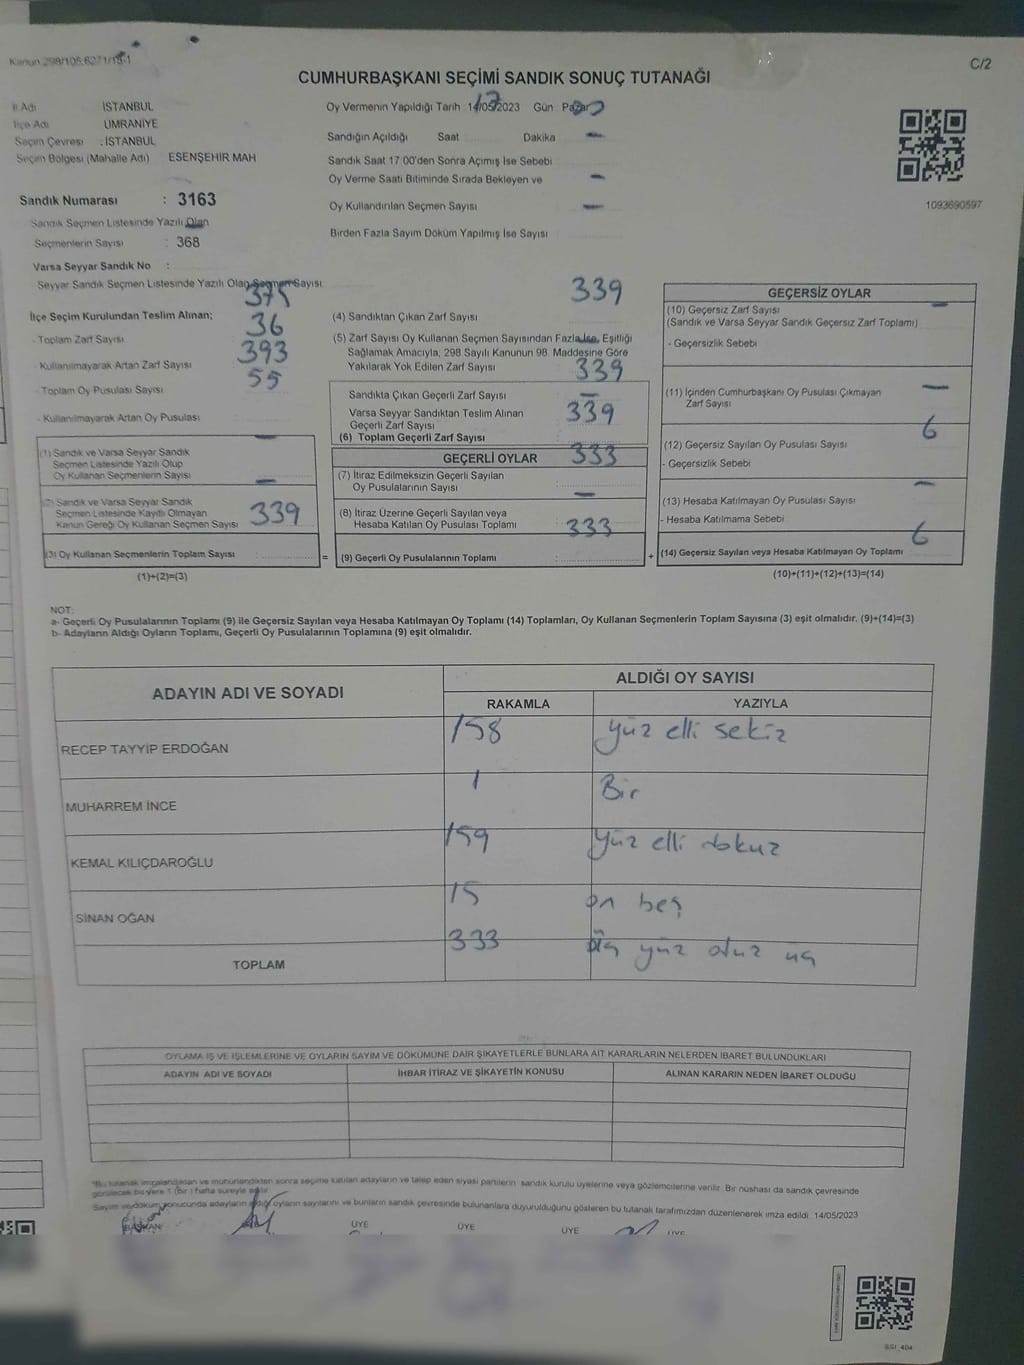 Kanun 298/105,6271/19-1
C/2
CUMHURBAŞKANI SEÇİMİ SANDIK SONUÇ TUTANAĞI
İl Adı İSTANBUL
İlçe Adı ÜMRANİYE
Seçim Çevresi : İSTANBUL
Seçim Bölgesi (Mahalle Adı) ESENŞEHİR MAH
Sandık Numarası : 3163
Sandık Seçmen Listesinde Yazılı Olan
Seçmenlerin Sayısı : 368
Varsa Seyyar Sandık No :
Seyyar Sandık Seçmen Listesinde Yazılı Olan Seçmen Sayısı
Oy Vermenin Yapıldığı Tarih 14/05/2023 Gün Pazar
Sandığın Açıldığı Saat Dakika
Sandık Saat 17:00'den Sonra Açımış İse Sebebi
Oy Verme Saati Bitiminde Sırada Bekleyen ve
Oy Kullandırılan Seçmen Sayısı
Birden Fazla Sayım Döküm Yapılmış İse Sayısı
1093690597
375
İlçe Seçim Kurulundan Teslim Alınan;
36
- Toplam Zarf Sayısı
393
Kullanılmayarak Artan Zarf Sayısı
55
- Toplam Oy Pusulası Sayısı
- Kullanılmayarak Artan Oy Pusulası
(1) Sandık ve Varsa Seyyar Sandık
Seçmen Listesinde Yazılı Olup
Oy Kullanan Seçmenlerin Sayısı
(2) Sandık ve Varsa Seyyar Sandık
Seçmen Listesinde Kayıtlı Olmayan
Kanun Gereği Oy Kullanan Seçmen Sayısı
339
(3) Oy Kullanan Seçmenlerin Toplam Sayısı
=
(1)+(2)=(3)
339
(4) Sandıktan Çıkan Zarf Sayısı
(5) Zarf Sayısı Oy Kullanan Seçmen Sayısından Fazla İse, Eşitliği
Sağlamak Amacıyla, 298 Sayılı Kanunun 98. Maddesine Göre
Yakılarak Yok Edilen Zarf Sayısı
339
Sandıkta Çıkan Geçerli Zarf Sayısı
Varsa Seyyar Sandıktan Teslim Alınan
Geçerli Zarf Sayısı
339
(6) Toplam Geçerli Zarf Sayısı
GEÇERLİ OYLAR
333
(7) İtiraz Edilmeksizin Geçerli Sayılan
Oy Pusulalarının Sayısı
(8) İtiraz Üzerine Geçerli Sayılan veya
Hesaba Katılan Oy Pusulası Toplamı
333
(9) Geçerli Oy Pusulalarının Toplamı
+
GEÇERSİZ OYLAR
(10) Geçersiz Zarf Sayısı
(Sandık ve Varsa Seyyar Sandık Geçersiz Zarf Toplamı)
- Geçersizlik Sebebi
(11) İçinden Cumhurbaşkanı Oy Pusulası Çıkmayan
Zarf Sayısı
6
(12) Geçersiz Sayılan Oy Pusulası Sayısı
- Geçersizlik Sebebi
(13) Hesaba Katılmayan Oy Pusulası Sayısı
- Hesaba Katılmama Sebebi
6
(14) Geçersiz Sayılan veya Hesaba Katılmayan Oy Toplamı
(10)+(11)+(12)+(13)=(14)
NOT:
a- Geçerli Oy Pusulalarının Toplamı (9) ile Geçersiz Sayılan veya Hesaba Katılmayan Oy Toplamı (14) Toplamları, Oy Kullanan Seçmenlerin Toplam Sayısına (3) eşit olmalıdır. (9)+(14)=(3)
b- Adayların Aldığı Oyların Toplamı, Geçerli Oy Pusulalarının Toplamına (9) eşit olmalıdır.
ADAYIN ADI VE SOYADI
ALDIĞI OY SAYISI
RAKAMLA YAZIYLA
RECEP TAYYİP ERDOĞAN 158 yüz elli sekiz
MUHARREM İNCE 1 Bir
KEMAL KILIÇDAROĞLU 159 yüz elli dokuz
SİNAN OĞAN 15 on beş
TOPLAM 333 üç yüz otuz üç
OYLAMA İŞ VE İŞLEMLERİNE VE OYLARIN SAYIM VE DÖKÜMÜNE DAİR ŞİKAYETLERLE BUNLARA AİT KARARLARIN NELERDEN İBARET BULUNDUKLARI
ADAYIN ADI VE SOYADI İHBAR İTİRAZ VE ŞİKAYETİN KONUSU ALINAN KARARIN NEDEN İBARET OLDUĞU
*Bu tutanak imzalandıktan ve mühürlendikten sonra seçime katılan adayların ve talep eden siyasi partilerin sandık kurulu üyelerine veya gözlemcilerine verilir. Bir nüshası da sandık çevresinde
görülecek bir yere 1 (bir) hafta süreyle asılır.
Sayım ve döküm sonucunda adayların aldığı oyların sayılarını ve bunların sandık çevresinde bulunanlara duyurulduğunu gösteren bu tutanak tarafımızdan düzenlenerek imza edildi. 14/05/2023
BAŞKAN ÜYE ÜYE ÜYE ÜYE